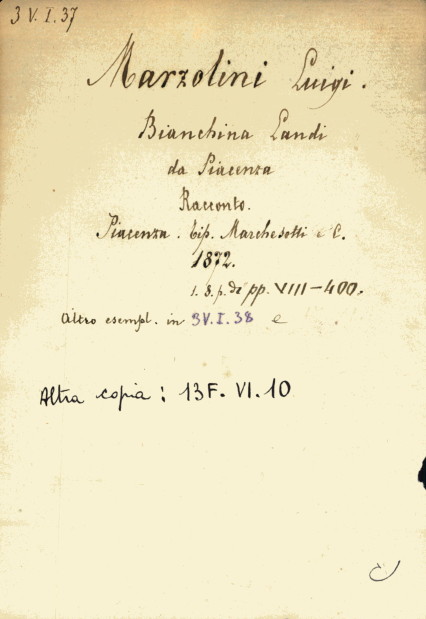 3 V. I. 37
Marzolini Luigi.
Bianchina Landi
da Piacenza
Racconto.
Piacenza. Tip. Marchesotti e C.
1872.
pp. VIII-400.
Altro esempl. in 3V. I. 38 e
Altra copia: 13F. VI. 10